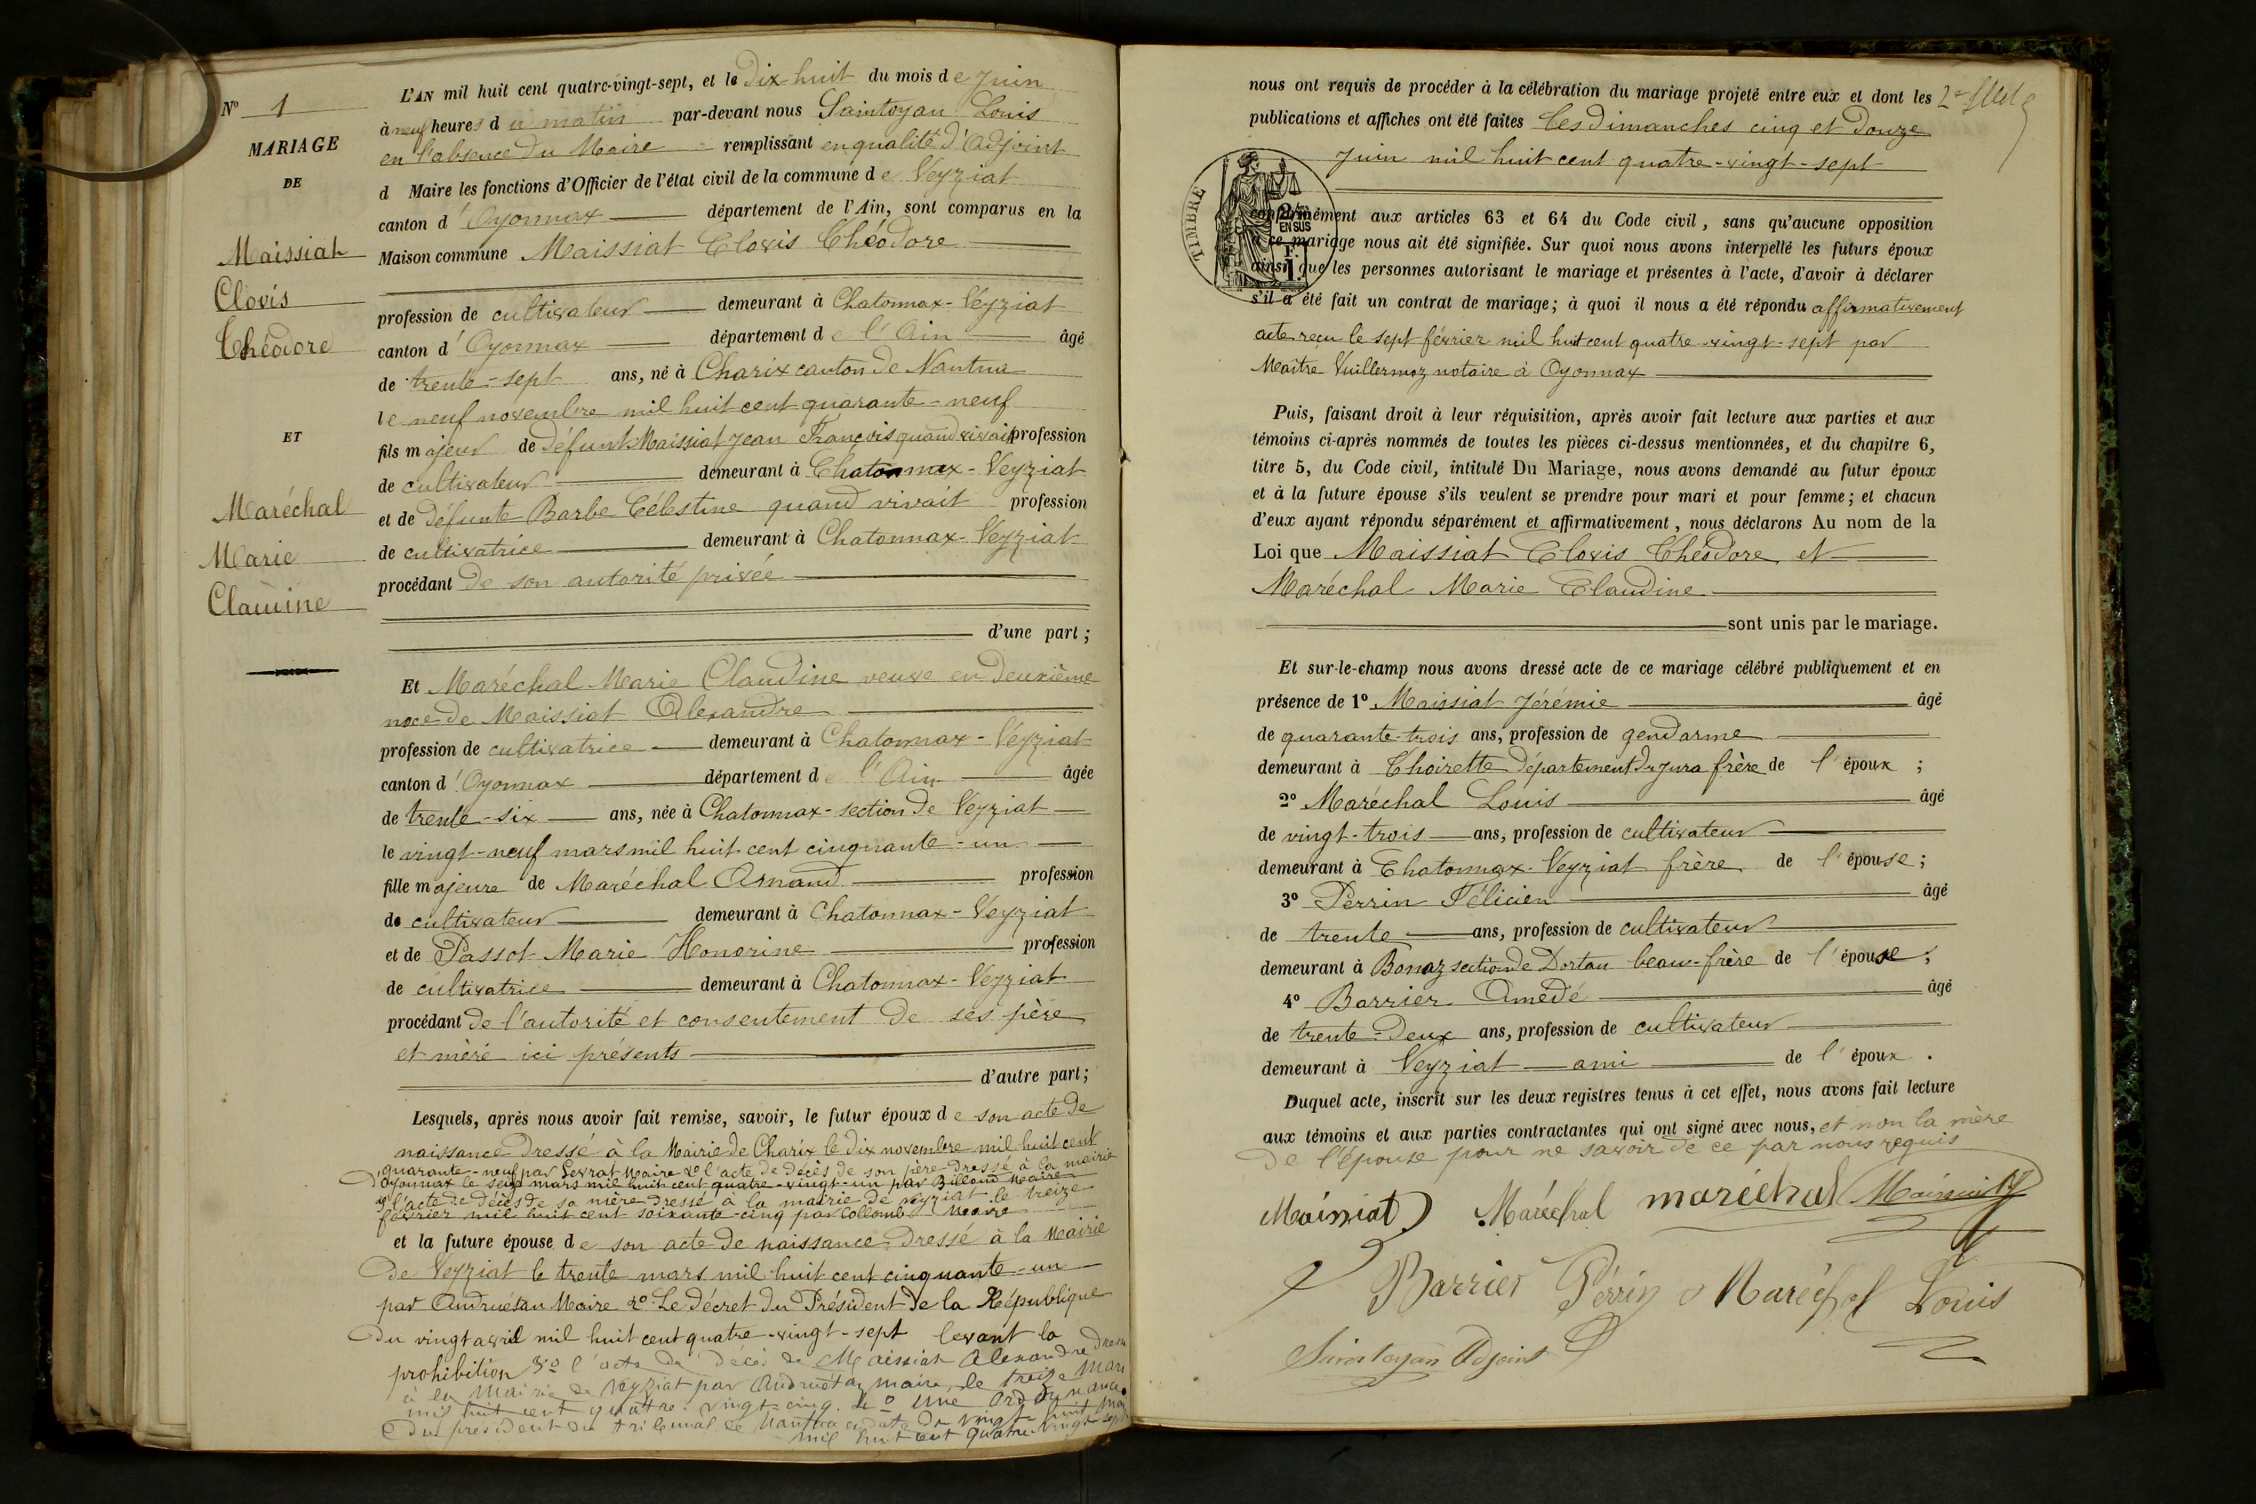 N° 1
MARIAGE
DE
Maissiat
Clovis
Théodore
ET
Maréchal
Marie
Claudine
L'AN mil huit cent quatre-vingt-sept, et le dix-huit du mois de Juin
à neuf heures du matin par-devant nous Saintoyan Louis
en l'absence du Maire remplissant en qualité d'Adjoint
d Maire les fonctions d'Officier de l'état civil de la commune de Veyziat
canton d'Oyonnax département de l'Ain, sont comparus en la
Maison commune Maissiat Clovis Théodore
profession de cultivateur demeurant à Chatonnax-Veyziat
canton d'Oyonnax département de l'Ain âgé
de trente-sept ans, né à Charix canton de Nantua
le neuf novembre mil huit cent quarante-neuf
fils majeur de défunt Maissiat Jean François quand vivait profession
de cultivateur demeurant à Chatonnax-Veyziat
et de défunte Barbe Célestine quand vivait profession
de cultivatrice demeurant à Chatonnax-Veyziat
procédant de son autorité privée
d'une part ;
Et Maréchal Marie Claudine veuve en deuxième
noce de Maissiat Alexandre
profession de cultivatrice demeurant à Chatonnax-Veyziat
canton d'Oyonnax département de l'Ain âgée
de trente-six ans, née à Chatonnax-section de Veyziat
le vingt-neuf mars mil huit cent cinquante-un
fille majeure de Maréchal Arnaud profession
de cultivateur demeurant à Chatonnax-Veyziat
et de Passot Marie Honorine profession
de cultivatrice demeurant à Chatonnax-Veyziat
procédant de l'autorité et consentement de ses père
et mère ici présents
d'autre part ;
Lesquels, après nous avoir fait remise, savoir, le futur époux de son acte de
naissance dressé à la Mairie de Charix le dix novembre mil huit cent
quarante-neuf par Levrat Maire 2° l'acte de décès de son père dressé à la mairie
d'Oyonnax le seize mars mil huit cent quatre-vingt-un par Billoud Maire
3° l'acte de décès de sa mère dressé à la mairie de Veyziat le treize
février mil huit cent soixante-cinq par Collomb Maire
et la future épouse de son acte de naissance dressé à la Mairie
de Veyziat le trente mars mil huit cent cinquante-un
par Andruétan Maire 2° Le décret du Président de la République
du vingt avril mil huit cent quatre-vingt-sept levant la
prohibition 3° l'acte de décès de Maissiat Alexandre dressé
à la Mairie de Veyziat par Andruétan maire, le treize Mars
mil huit cent quatre-vingt-cinq. 4° Une Ordonnance
du président du tribunal de Nantua en date du vingt-huit Mai
mil huit cent quatre-vingt sept
nous ont requis de procéder à la célébration du mariage projeté entre eux et dont les
publications et affiches ont été faites les dimanches cinq et douze
Juin mil huit cent quatre-vingt-sept
TIMBRE
2/10es
EN SUS
F.
1.
conformément aux articles 63 et 64 du Code civil, sans qu'aucune opposition
à ce mariage nous ait été signifiée. Sur quoi nous avons interpellé les futurs époux
ainsi que les personnes autorisant le mariage et présentes à l'acte, d'avoir à déclarer
s'il a été fait un contrat de mariage; à quoi il nous a été répondu affirmativement
acte reçu le sept février mil huit cent quatre-vingt-sept par
Maître Vuillermoz notaire à Oyonnax
Puis, faisant droit à leur réquisition, après avoir fait lecture aux parties et aux
témoins ci-après nommés de toutes les pièces ci-dessus mentionnées, et du chapitre 6,
titre 5, du Code civil, intitulé Du Mariage, nous avons demandé au futur époux
et à la future épouse s'ils veulent se prendre pour mari et pour femme; et chacun
d'eux ayant répondu séparément et affirmativement, nous déclarons Au nom de la
Loi que Maissiat Clovis Théodore et
Maréchal Marie Claudine
sont unis par le mariage.
Et sur-le-champ nous avons dressé acte de ce mariage célébré publiquement et en
présence de 1° Maissiat Jérémie âgé
de quarante-trois ans, profession de gendarme
demeurant à Thoirette Département du Jura frère de l'époux ;
2° Maréchal Louis âgé
de vingt-trois ans, profession de cultivateur
demeurant à Chatonnax-Veyziat frère de l'épouse ;
3° Perrin Félicien âgé
de trente ans, profession de cultivateur
demeurant à Bonaz section de Dortan beau-frère de l'épouse ;
4° Barrier Amédé âgé
de trente-deux ans, profession de cultivateur
demeurant à Veyziat ami de l'époux .
Duquel acte, inscrit sur les deux registres tenus à cet effet, nous avons fait lecture
aux témoins et aux parties contractantes qui ont signé avec nous, et non la mère
de l'épouse pour ne savoir de ce par nous requis
Maissiat Maréchal maréchal Maissiat
Barrier Périn Maréchal Louis
Saintoyan Adjoint